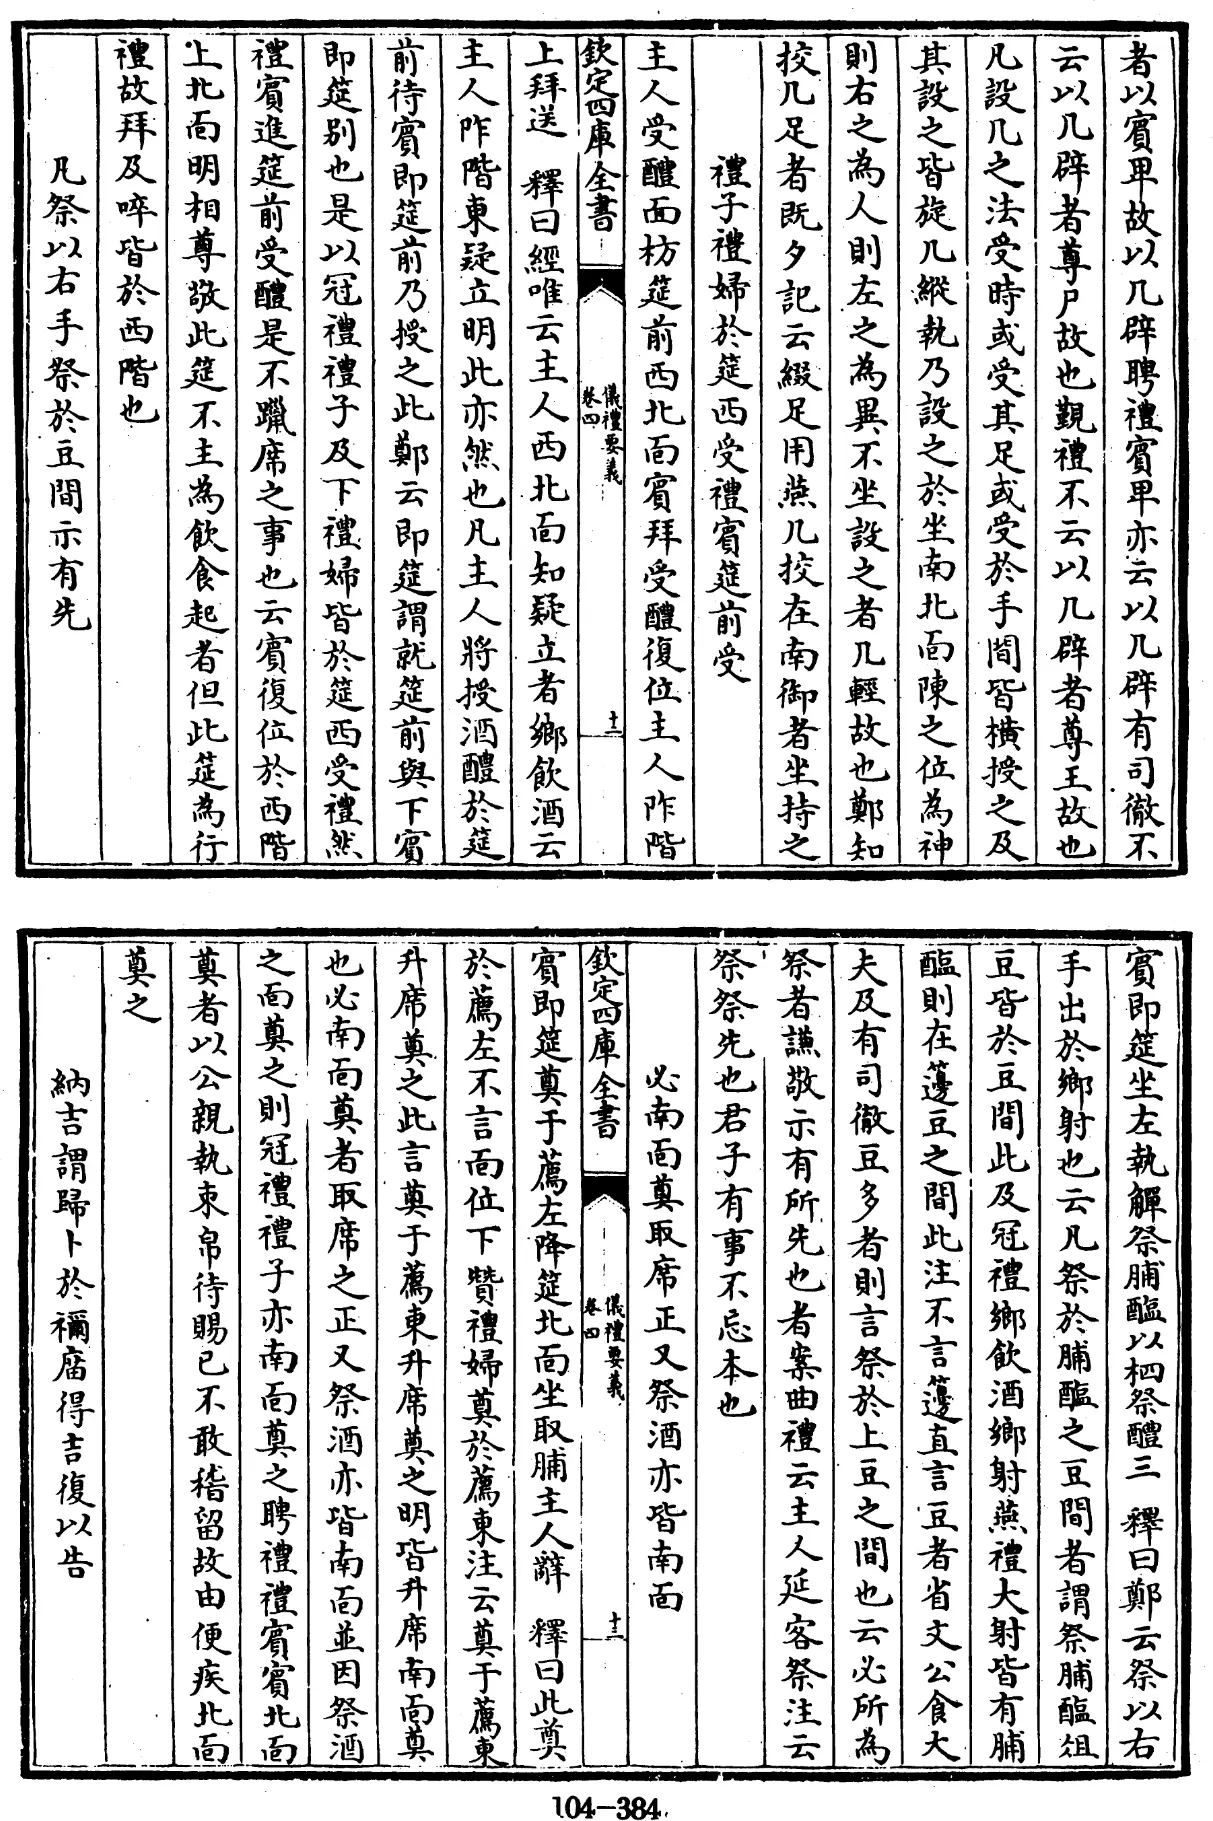 者以賓卑故以几辟聘禮賓卑亦云以几辟有司徹不
云以几辟者尊尸故也覲禮不云以几辟者尊王故也
凡設几之法受時或受其足或受於手間皆橫授之及
其設之皆旋几縱執乃設之於坐南北面陳之位為神
則右之為人則左之為異不坐設之者几輕故也鄭知
挍几足者既夕記云綴足用燕几挍在南御者坐持之
禮子禮婦於筵西受禮賓筵前受
主人受醴面枋筵前西北面賓拜受醴復位主人阼階
欽定四庫全書
儀禮要義
卷四
十二
上拜送 釋曰經唯云主人西北面知疑立者鄉飲酒云
主人阼階東疑立明此亦然也凡主人將授酒醴於筵
前待賓即筵前乃授之此鄭云即筵謂就筵前與下賓
即筵别也是以冠禮禮子及下禮婦皆於筵西受禮然
禮賓進筵前受醴是不躐席之事也云賓復位於西階
上北面明相尊敬此筵不主為飲食起者但此筵為行
禮故拜及啐皆於西階也
凡祭以右手祭於豆間示有先
賓即筵坐左執觶祭脯醢以柶祭醴三 釋曰鄭云祭以右
手出於鄉射也云凡祭於脯醢之豆間者謂祭脯醢俎
豆皆於豆間此及冠禮鄉飲酒鄉射燕禮大射皆有脯
醢則在籩豆之間此注不言籩直言豆者省文公食大
夫及有司徹豆多者則言祭於上豆之間也云必所為
祭者謙敬示有所先也者案曲禮云主人延客祭注云
祭祭先也君子有事不忘本也
必南面奠取席正又祭酒亦皆南面
欽定四庫全書
儀禮要義
卷四
十三
賓即筵奠于薦左降筵北面坐取脯主人辭 釋曰此奠
於薦左不言面位下贊禮婦奠於薦東注云奠于薦東
升席奠之此言奠于薦東升席奠之明皆升席南面奠
也必南面奠者取席之正又祭酒亦皆南面並因祭酒
之面奠之則冠禮禮子亦南面奠之聘禮禮賓賓北面
奠者以公親執束帛待賜已不敢稽留故由便疾北面
奠之
納吉謂歸卜於禰廟得吉復以告
104-384